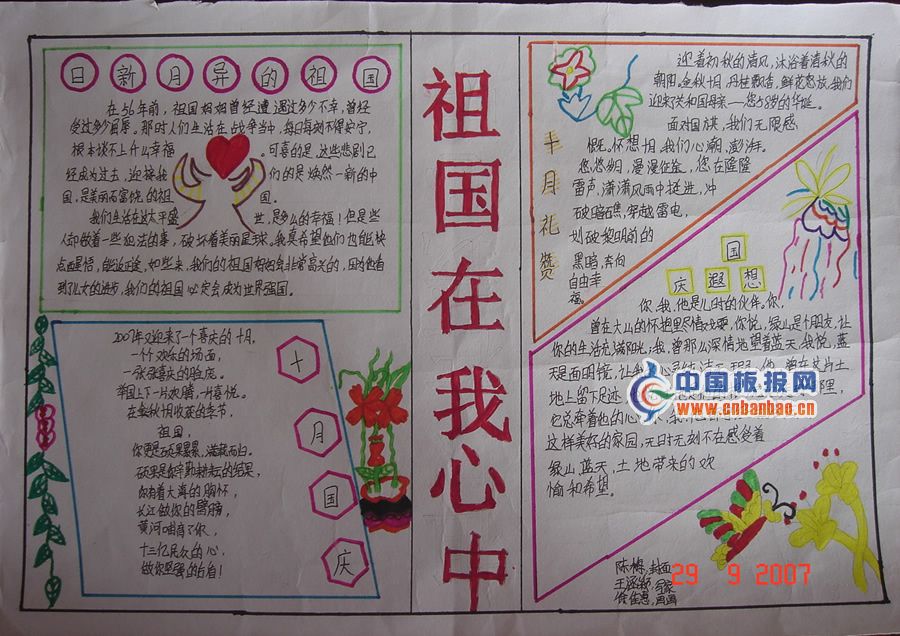 日新月异的祖国
在56年前，祖国妈妈曾经遭遇过多少不幸，曾经
受过多少屈辱。那时人们生活在战争当中，每日每刻不得安宁，
根本谈不上什么幸福。可喜的是，这些悲剧已
经成为过去，迎接我们的是焕然一新的中
国，是美丽而富饶的祖国。
我们生活在这太平盛世，是多么的幸福！但是些
人却做着一些犯法的事，破坏着美丽星球。我真希望他们也能快
点西星悟，能返正途，如些来，我们的祖国妈妈会非常高兴的，因为他看
到儿女的进步，我们的祖国必定会成为世界强国。
十月国庆
2007年又迎来了一个喜庆的十月，
一个个欢乐的场面，
一张张喜庆的脸庞。
举国上下一片欢腾，一片喜悦。
在金秋十月收获的季节，
祖国，
你更是硕果累累，满载而归。
硕果是你辛勤耕耘的结果，
你有着大海的胸怀，
长江做你的臂膀，
黄河哺育了你，
十三亿民众的心，
做你坚强的后盾！
祖国在我心中
丰月礼赞
迎着初秋的清风，沐浴着清秋的
朝阳，金秋十月，丹桂飘香，鲜花怒放，我们
迎来了共和国母亲——您58岁的华诞。
面对国旗，我们无限感
慨，怀想十月，我们心潮澎湃。
悠悠岁月，漫漫征途，您在隆隆
雷声，潇潇风雨中挺进，冲
破暗礁，穿越雷电，
划破黎明前的
黑暗，奔向
自由幸
福。
国
庆遐想
你、我、他是儿时的伙伴。你，
曾在大山的怀抱里尽情玩耍，你说，绿山是个朋友，让
你的生活充满阳光；我，曾那么深情地望着蓝天，我说，蓝
天是面明镜，让我
地上留下足迹
它总牵着他的心
这样美好的家园，无时无刻不在感受着
绿山、蓝天，土地带来的欢
愉和希望。
中国板报网
www.cnbanbao.cn
陈梅，封面
29 9 2007